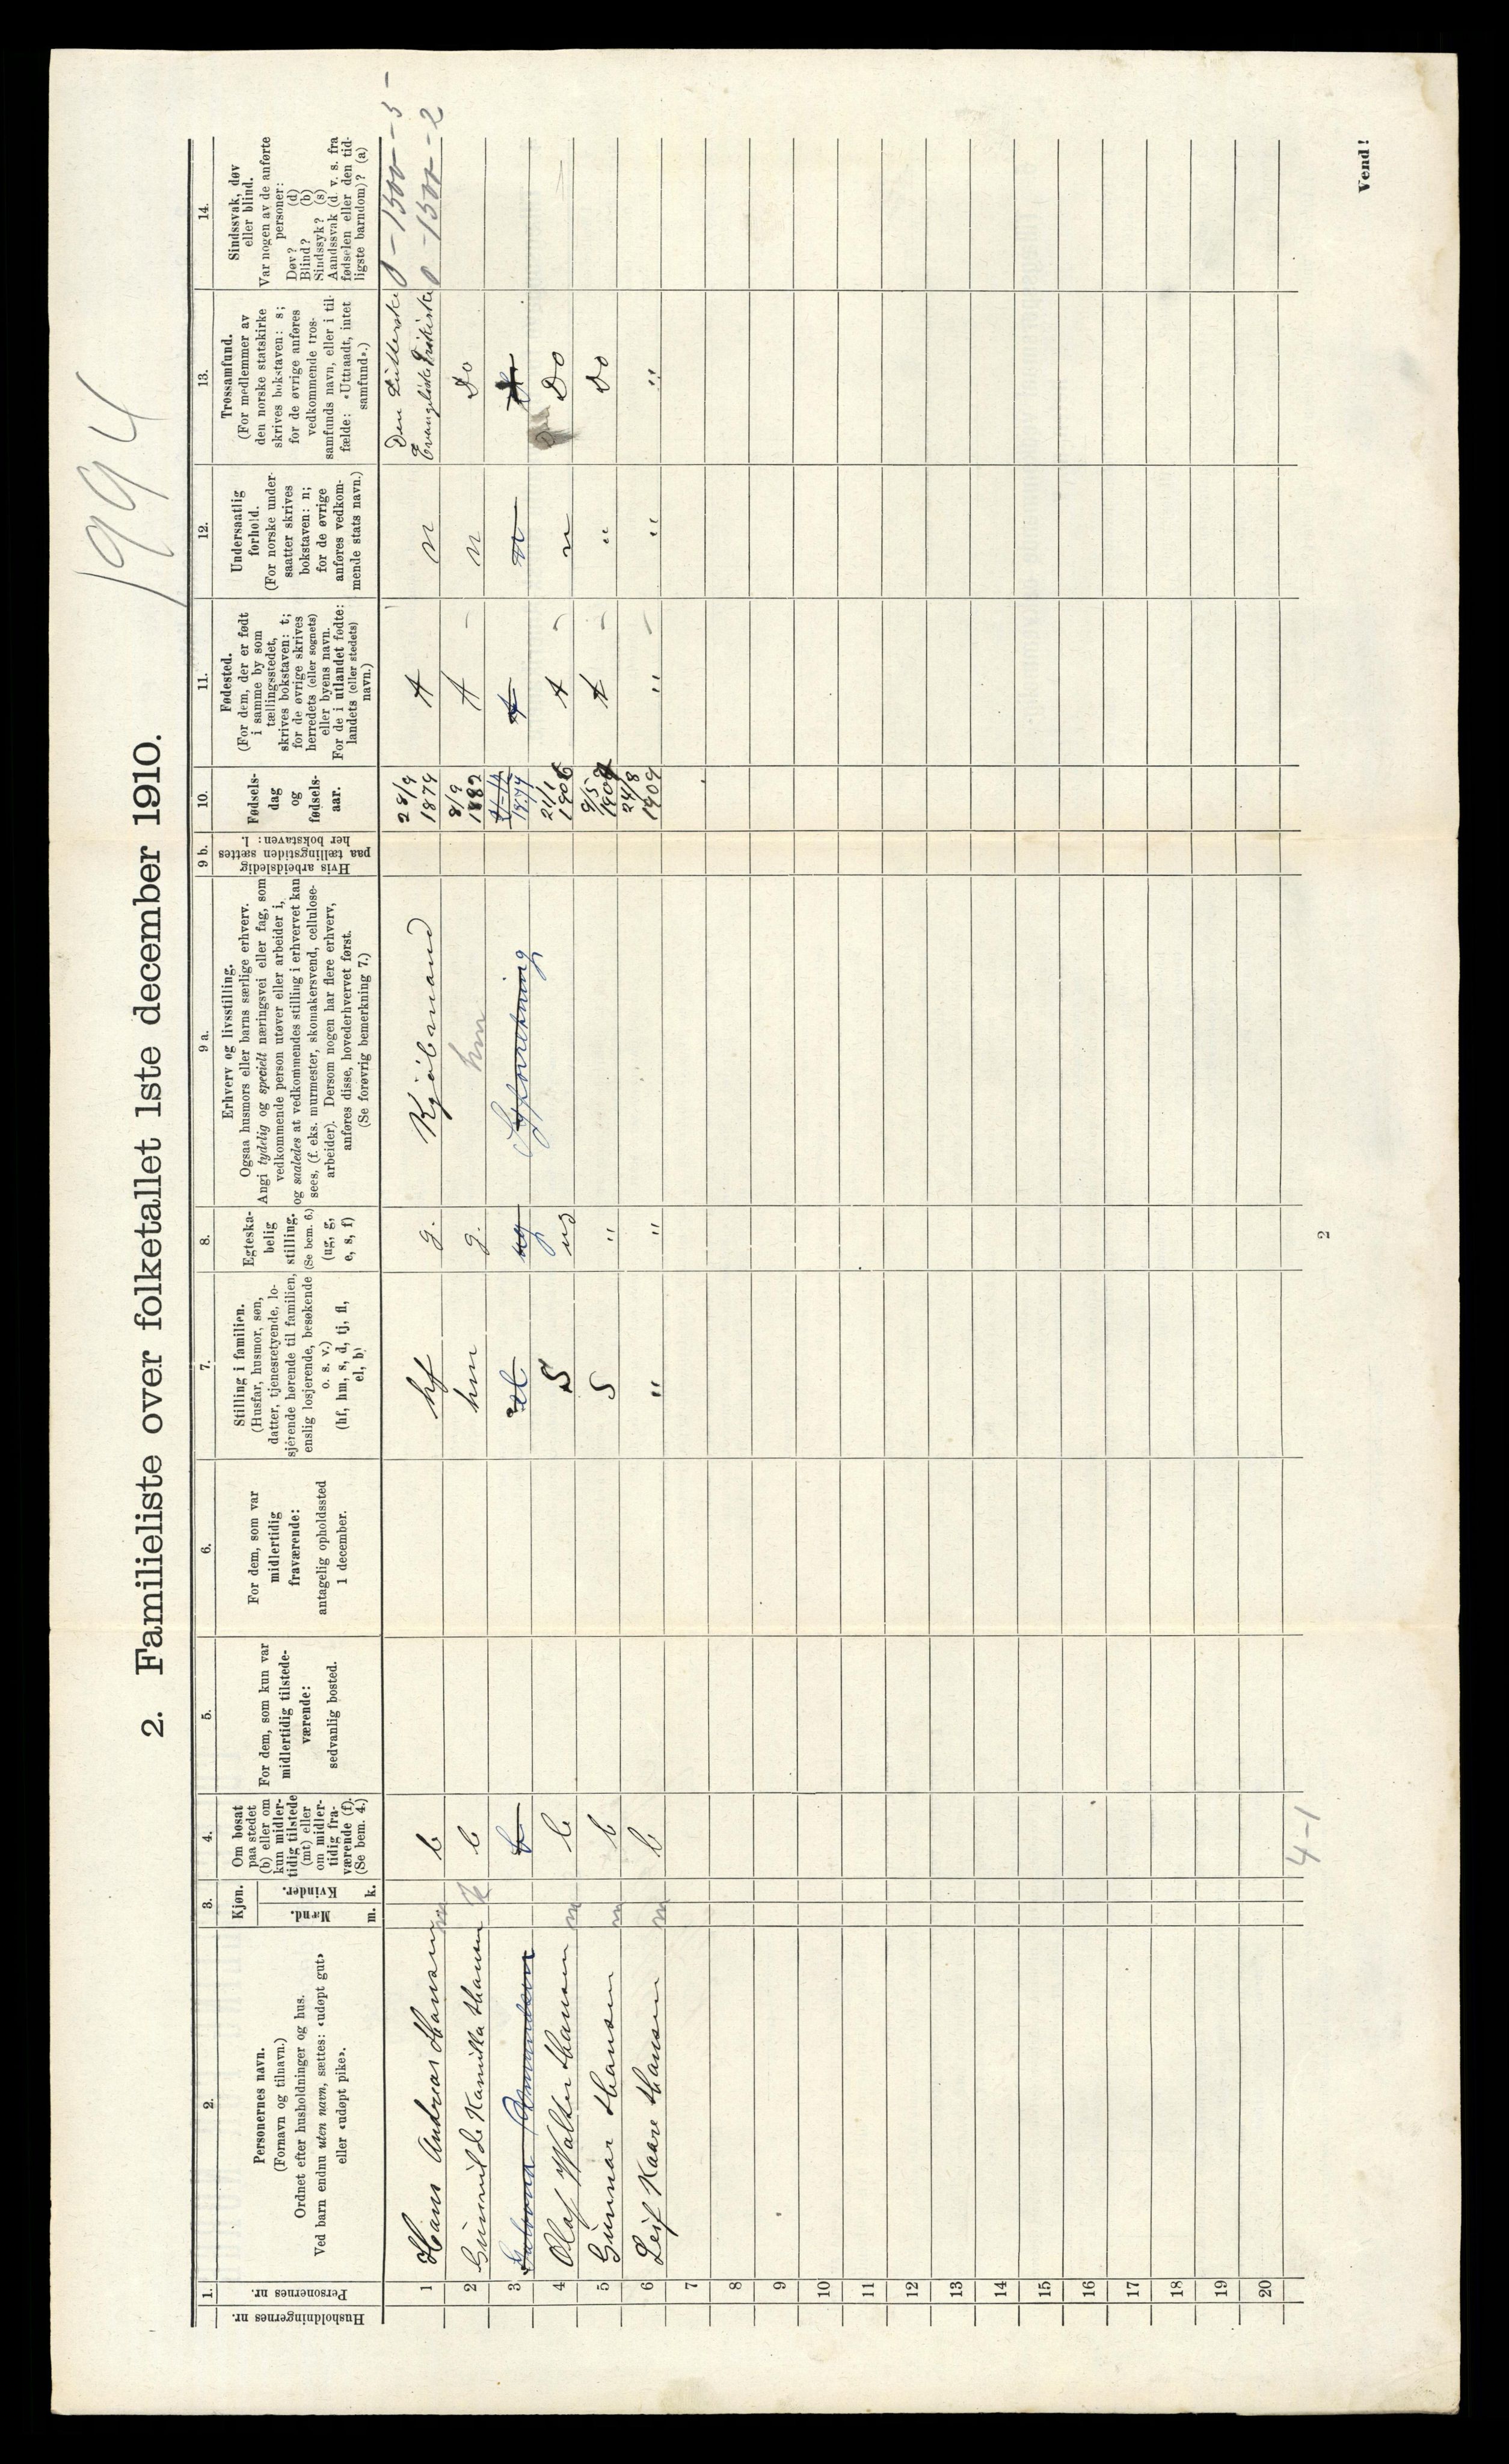 1994
2. Familieliste over folketallet 1ste december 1910.
Husholdningernes nr.
1.
Personernes nr.
2.
Personernes navn.
(Fornavn og tilnavn.)
Ordnet efter husholdninger og hus.
Ved barn endnu uten navn, sættes: «udøpt gut»
eller «udøpt pike».
3.
Kjøn.
Mænd.
Kvinder.
m. k.
4.
Om bosat
paa stedet
(b) eller om
kun midler-
tidig tilstede
(mt) eller
om midler-
tidig fra-
værende (f).
(Se bem. 4.)
5.
For dem, som kun var
midlertidig tilstede-
værende:
sedvanlig bosted.
6.
For dem, som var
midlertidig
fraværende:
antagelig opholdssted
1 december.
7.
Stilling i familien.
(Husfar, husmor, søn,
datter, tjenestetyende, lo-
sjerende hørende til familien,
enslig losjerende, besøkende
o. s. v.)
(hf, hm, s, d, tj, fl,
el, b)
8.
Egteska-
belig
stilling.
(Se bem. 6.)
(ug, g,
e, s, f)
9 a.
Erhverv og livsstilling.
Ogsaa husmors eller barns særlige erhverv.
Angi tydelig og specielt næringsvei eller fag, som
vedkommende person utøver eller arbeider i,
og saaledes at vedkommendes stilling i erhvervet kan
sees, (f. eks. murmester, skomakersvend, cellulose-
arbeider). Dersom nogen har flere erhverv,
anføres disse, hovederhvervet først.
(Se forøvrig bemerkning 7.)
9 b.
Hvis arbeidsledig
paa tællingstiden sættes
her bokstaven: l.
10.
Fødsels-
dag
og
fødsels-
aar.
11.
Fødested.
(For dem, der er født
i samme by som
tællingsstedet,
skrives bokstaven: t;
for de øvrige skrives
herredets (eller sognets)
eller byens navn.
For de i utlandet fødte:
landets (eller stedets)
navn.)
12.
Undersaatlig
forhold.
(For norske under-
saatter skrives
bokstaven: n;
for de øvrige
anføres vedkom-
mende stats navn.)
13.
Trossamfund.
(For medlemmer av
den norske statskirke
skrives bokstaven: s;
for de øvrige anføres
vedkommende tros-
samfunds navn, eller i til-
fælde: «Uttraadt, intet
samfund».)
14.
Sindssvak, døv
eller blind.
Var nogen av de anførte
personer:
Døv? (d)
Blind? (b)
Sindssyk? (s)
Aandssvak (d. v. s. fra
fødselen eller den tid-
ligste barndom)? (a)
1 Hans Andreas Hansen m b hf g. Kjøbmand 28/9 1879 t n Den Lutterske Evangeliske 0 - 1500 - 5 -
0 - 1500 - 2
2 Gunnilde Kamilla Hansen k b hm g. hm 8/9 1882 t n Do
3 Amundsen b el ug t n
4 Olaf Walter Hansen m b S ug 21/1 1906 t n Do
5 Gunnar Hansen m b S " 9/5 t " Do
6 Leif Kaare Hansen m b " " 24/8 1909 " " "
7
8
9
10
11
12
13
14
15
16
17
18
19
20
4-1
2
Vend!